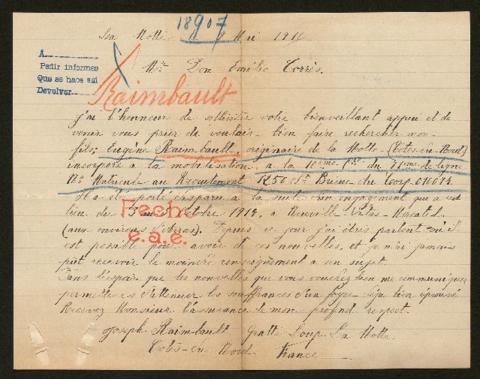 La Motte
18907
Mai 1916
A
Pedir informes
Que se hace así
Devolver
Mr Don Emilio Torrès.
Raimbault
j'ai l'honneur de solliciter votre bienveillant appui et de
venir vous prier de vouloir bien faire rechercher mon
fils; Eugène Raimbault, originaire de la Motte (Côtes-du-Nord)
incorporé à la mobilisation à la 10ème Cie du 71ème de ligne
No Matricule au Recrutement 1250 St Brieuc du Corps
Il a été porté disparu à la suite d'un engagement qui a eu
lieu de 5 octobre 1914, à Neuville
(aux environs d'Arras). Depuis ce jour j'ai écrit partout où il
est possible pour avoir de ses nouvelles, et je n'ai jamais
pût recevoir le moindre renseignement à son sujet.
Fecho
e.a.e.
Dans l'espoir que les nouvelles que vous voudrez bien me communiquer
permettront d'atténuer les souffrances d'un foyer déjà bien éprouvé
Recevez Monsieur l'assurance de mon profond respect.
Joseph Raimbault Loup La Motte
Côtes-du Nord France